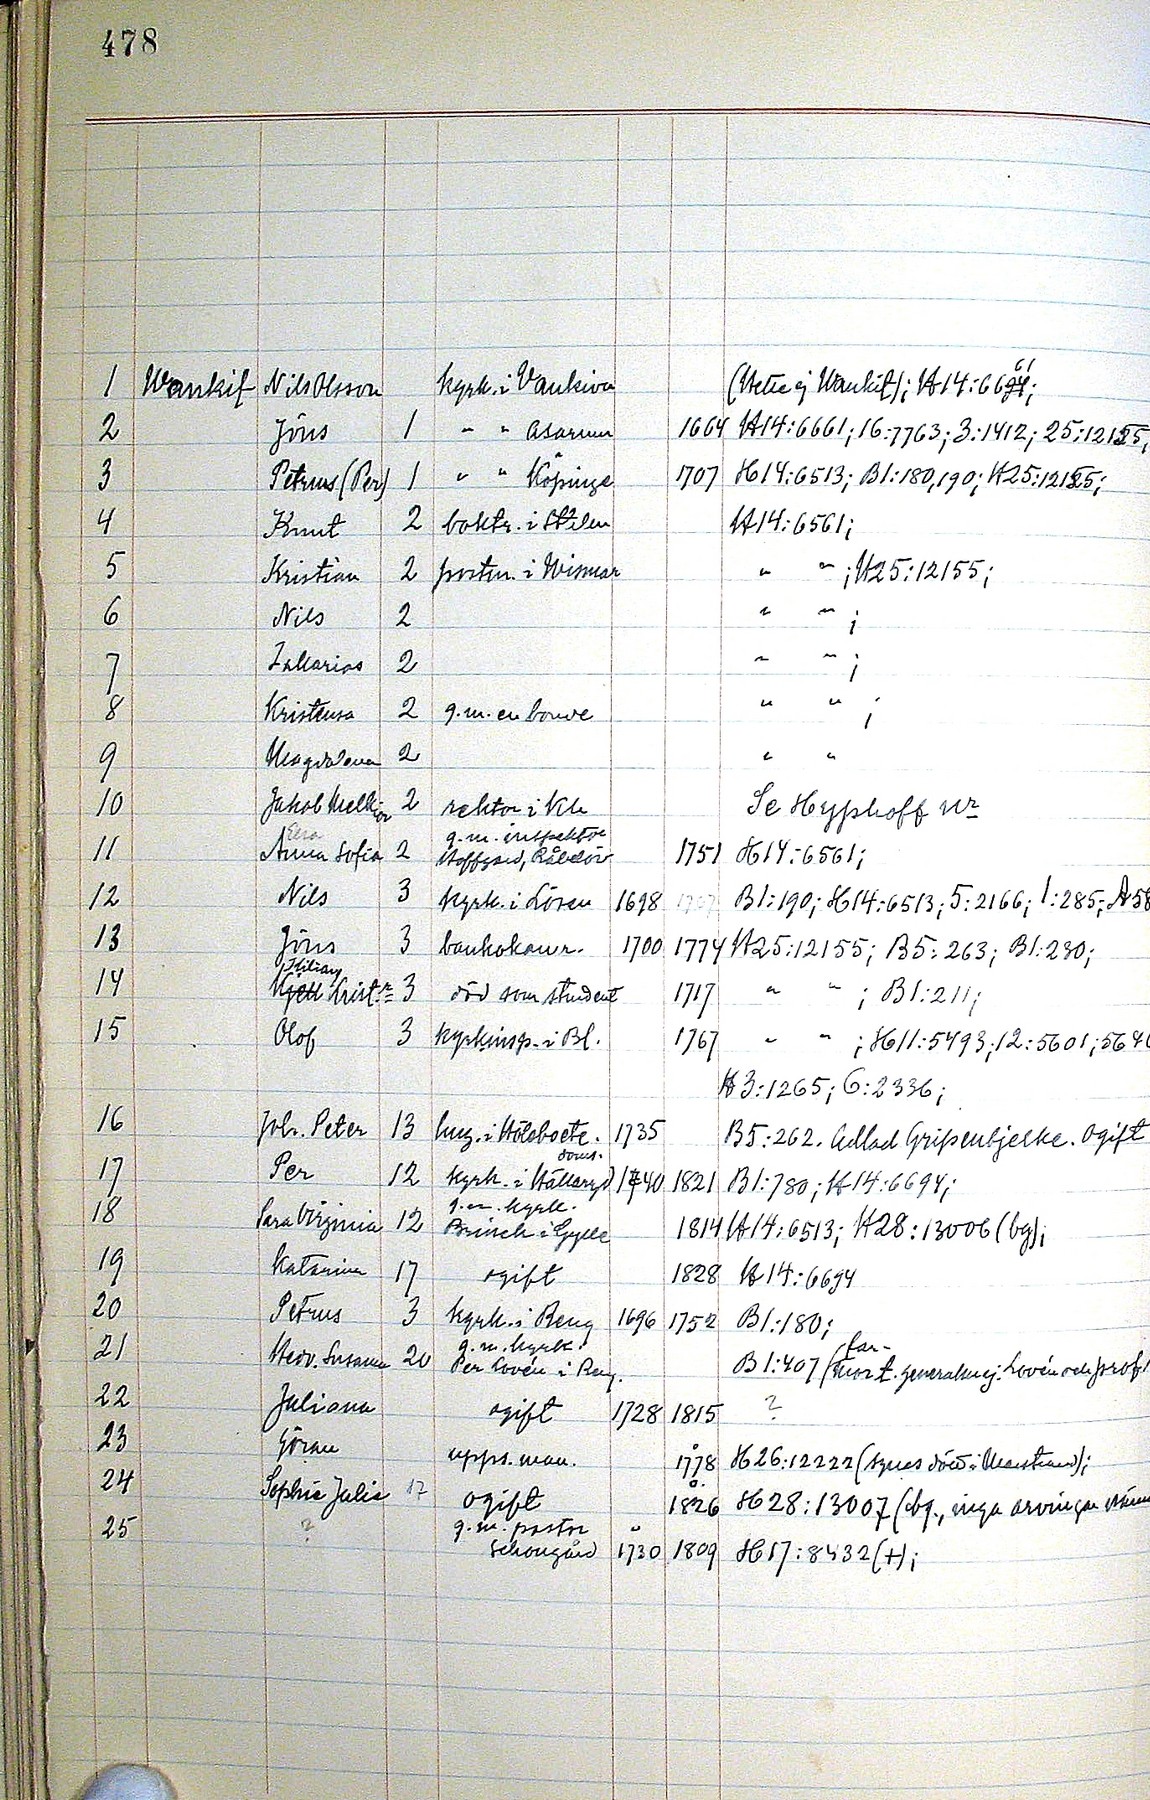 478
1 Wankif Nils Olsson kyrk. i Vankiva (Hette ej Wankif); H14:66
2 Jöns 1 " " Asarum 1664 H14:6661; 16:7763; 3:1412; 25:12155;
3 Petrus (Per) 1 " " Köpinge 1707 H14:6513; B1:180,190; H25:12155;
4 Knut 2 boktr. i H14:6561;
5 Kristian 2 postm. i Wismar " " ; H25:12155;
6 Nils 2 " " ;
7 Zakarias 2 " " ;
8 Kristensa 2 g. m. en bonde " " ;
9 Magdalena 2 " "
10 Jakob Melkior 2 rektor i Se Hyphoff nr
Elsa g. m. inspektor
11 Anna Sofia 2 1751 H14:6561;
12 Nils 3 kyrk. i Lösen 1698 1707 B1:190; H14:6513; 5:2166; 1:285; A58
13 Jöns 3 bankokomr. 1700 1774 H25:12155; B5:263; B1:230;
Kilian
14 Krist:r 3 död som student 1717 " " ; B1:211;
15 Olof 3 kyrkinsp. i Bl. 1767 " " ; H11:5493; 12:5601; 564
H3:1265; 6:2336;
16 Joh. Peter 13 1735 B5:262. Adlad Gripenbjelke. Ogift
17 Per 12 kyrk. i Hällaryd 1740 1821 B1:780; H14:6694;
g. m. kyrk.
18 Sara Virginia 12 Brinck i Gylle 1814 H14:6513; H28:13006 (bg);
19 Katarina 17 ogift 1828 H14:6694
20 Petrus 3 kyrk. i Reng 1696 1752 B1:180;
g. m. kyrk. far-
21 Hedv. Susanna 20 Per Lovén i Reng. B1:407 (mor t. generalkrigs. Lovén och prof.
22 Juliana ogift 1728 1815 ?
23 Göran upps. man. 1778 H26:12222 (synes död i Marstrand);
24 Sophie Julie 17 ogift 1826 H28:13007 (bg., inga arvingar
g. m. pastor
25 ? Schougård 1730 1809 H17:8432 (+);